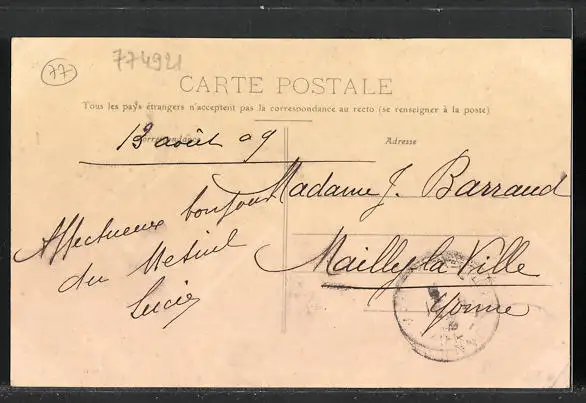 77
774921
CARTE POSTALE
Tous les pays étrangers n'acceptent pas la correspondance au recto (se renseigner à la poste)
Correspondance
Adresse
13 août 09
Affectueux bonjour
du Mesnil
Lucie
Madame J. Barraud
Mailly-la-Ville
Yonne